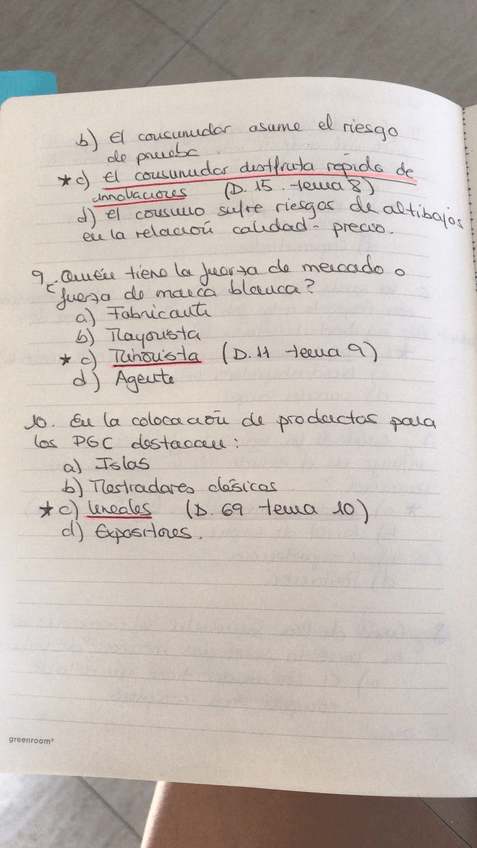 b) El consumidor asume el riesgo
de prueba
* c) El consumidor disfruta rápido de
innovaciones (D. 15 . tema 8)
d) El consumo sufre riesgos de altibajos
en la relación calidad - precio.
9. ¿Quién tiene la fuerza de mercado o
fuerza de marca blanca?
a) Fabricante
b) Mayorista
* c) Minorista (D. 11 tema 9)
d) Agente
10. En la colocación de productos para
los PGC destacan:
a) Islas
b) Mostradores clásicos
* c) Lineales (D. 69 tema 10)
d) Expositores.
greenroom®